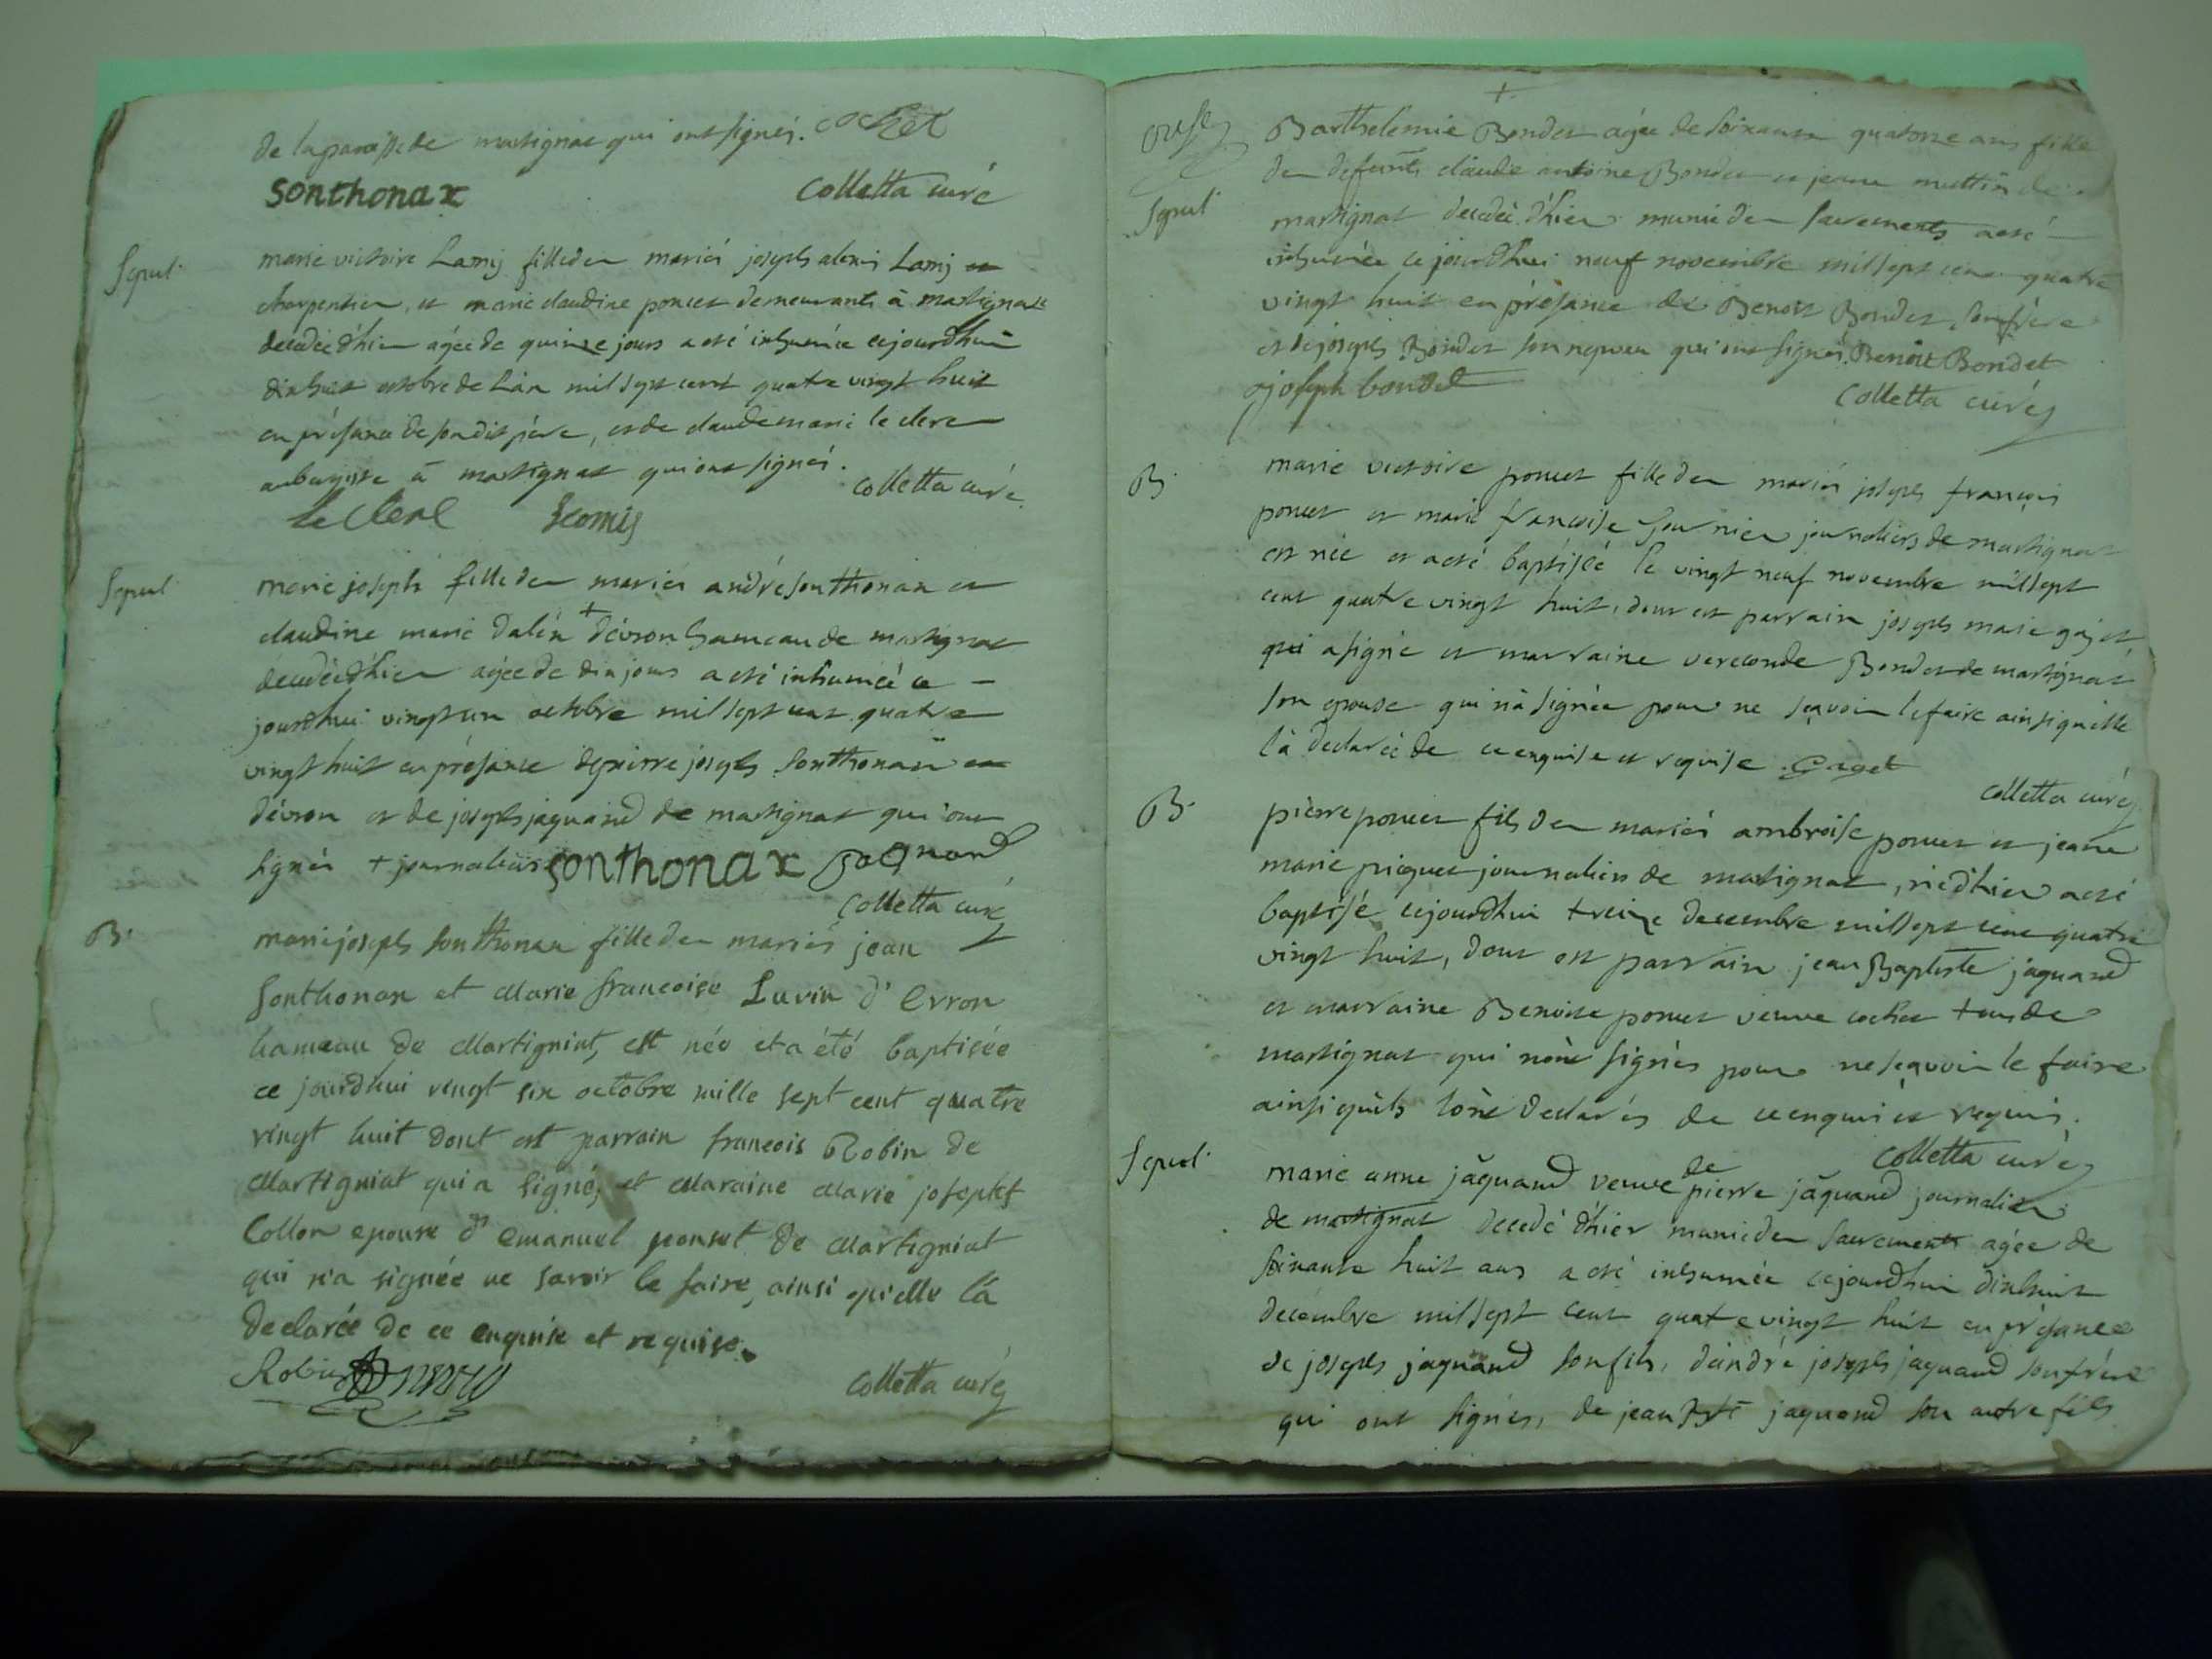 de la paroisse de martignat qui ont signés. cochet
sonthonax colletta curé
Sepul.
marie victoire Lamy fille des mariés joseph alexis Lamy
charpentier, et marie claudine poncet demeurants à martignat
decedée d'hier agée de quinze jours a eté inhumée cejourdhui
dixhuit octobre de l'an mil sept cent quatre vingt huit
en présance de son dit père, et de claude marie le clerc
aubergiste à martignat qui ont signés.
colletta curé
le Clerc
Sepul
marie joseph fille des mariés andré sonthonax et
claudine marie + d'évron hameau de martignat
decedée d'hier agée de dix jours a eté inhumée ce
jourdhui vingt un octobre mil sept cent quatre
vingt huit en présance de pierre joseph sonthonax
d'évron et de joseph jaquand de martignat qui ont
signés + journaliers sonthonax jaquand
colletta curé
B.
marie joseph sonthonax fille des mariés jean
Sonthonax et Marie francoise Luvin d'Evron
hameau de Martigniat, est née et a été baptisée
ce jourdhui vingt six octobre mille sept cent quatre
vingt huit dont est parrain francois Robin de
Martigniat qui a signé, et Maraine Marie josephte
Collon epouse d'emanuel ponset de Martigniat
qui n'a signée ne savoir le faire, ainsi qu'elle l'a
declarée de ce enquise et requise.
Robin colletta curé
onze
Sepul
Barthelemie Bondet agée de soixante quatorze ans fille
des defunts claude antoine Bondet et jeane mettin de
martignat decedée d'hier munie des sacrements a eté
inhumée ce jourdhui neuf novembre mil sept cent quatre
vingt huit en présance de Benoit Bondet, son frère
et de joseph Bondet son nepveu qui ont signés. Benoit Bondet
joseph bondet colletta curé
B.
marie victoire poncet fille des mariés joseph françois
poncet et marie françoise journaliers de martignat
est née et a eté baptisée le vingt neuf novembre mil sept
cent quatre vingt huit, dont est parrain joseph marie gaget,
qui a signé et marraine vereconde Bondet de martignat
son epouse qui n'a signée pour ne sçavoir le faire ainsi qu'elle
l'a declarée de ce enquise et requise. Gaget
colletta curé
B.
pierre poncet fils des mariés ambroise poncet et jeane
marie piquet journaliers de martignat, né d'hier a eté
baptisé cejourdhui treize decembre mil sept cent quatre
vingt huit, dont est parrain jean Baptiste jaquand
et marraine Benoite poncet veuve cochet tous de
martignat qui n'ont signés pour ne sçavoir le faire
ainsi qu'ils l'ont declarés de ce enquis et requis.
colletta curé
Sepul.
marie anne jaquand veuve de pierre jaquand journalier
de martignat decedé d'hier munie des sacrements agée de
soixante huit ans a eté inhumée cejourdhui dixhuit
decembre mil sept cent quatre vingt huit en présance
de joseph jaquand son fils, d'andré joseph jaquand son frère
qui ont signés, de jean Bpte jaquand son autre fils